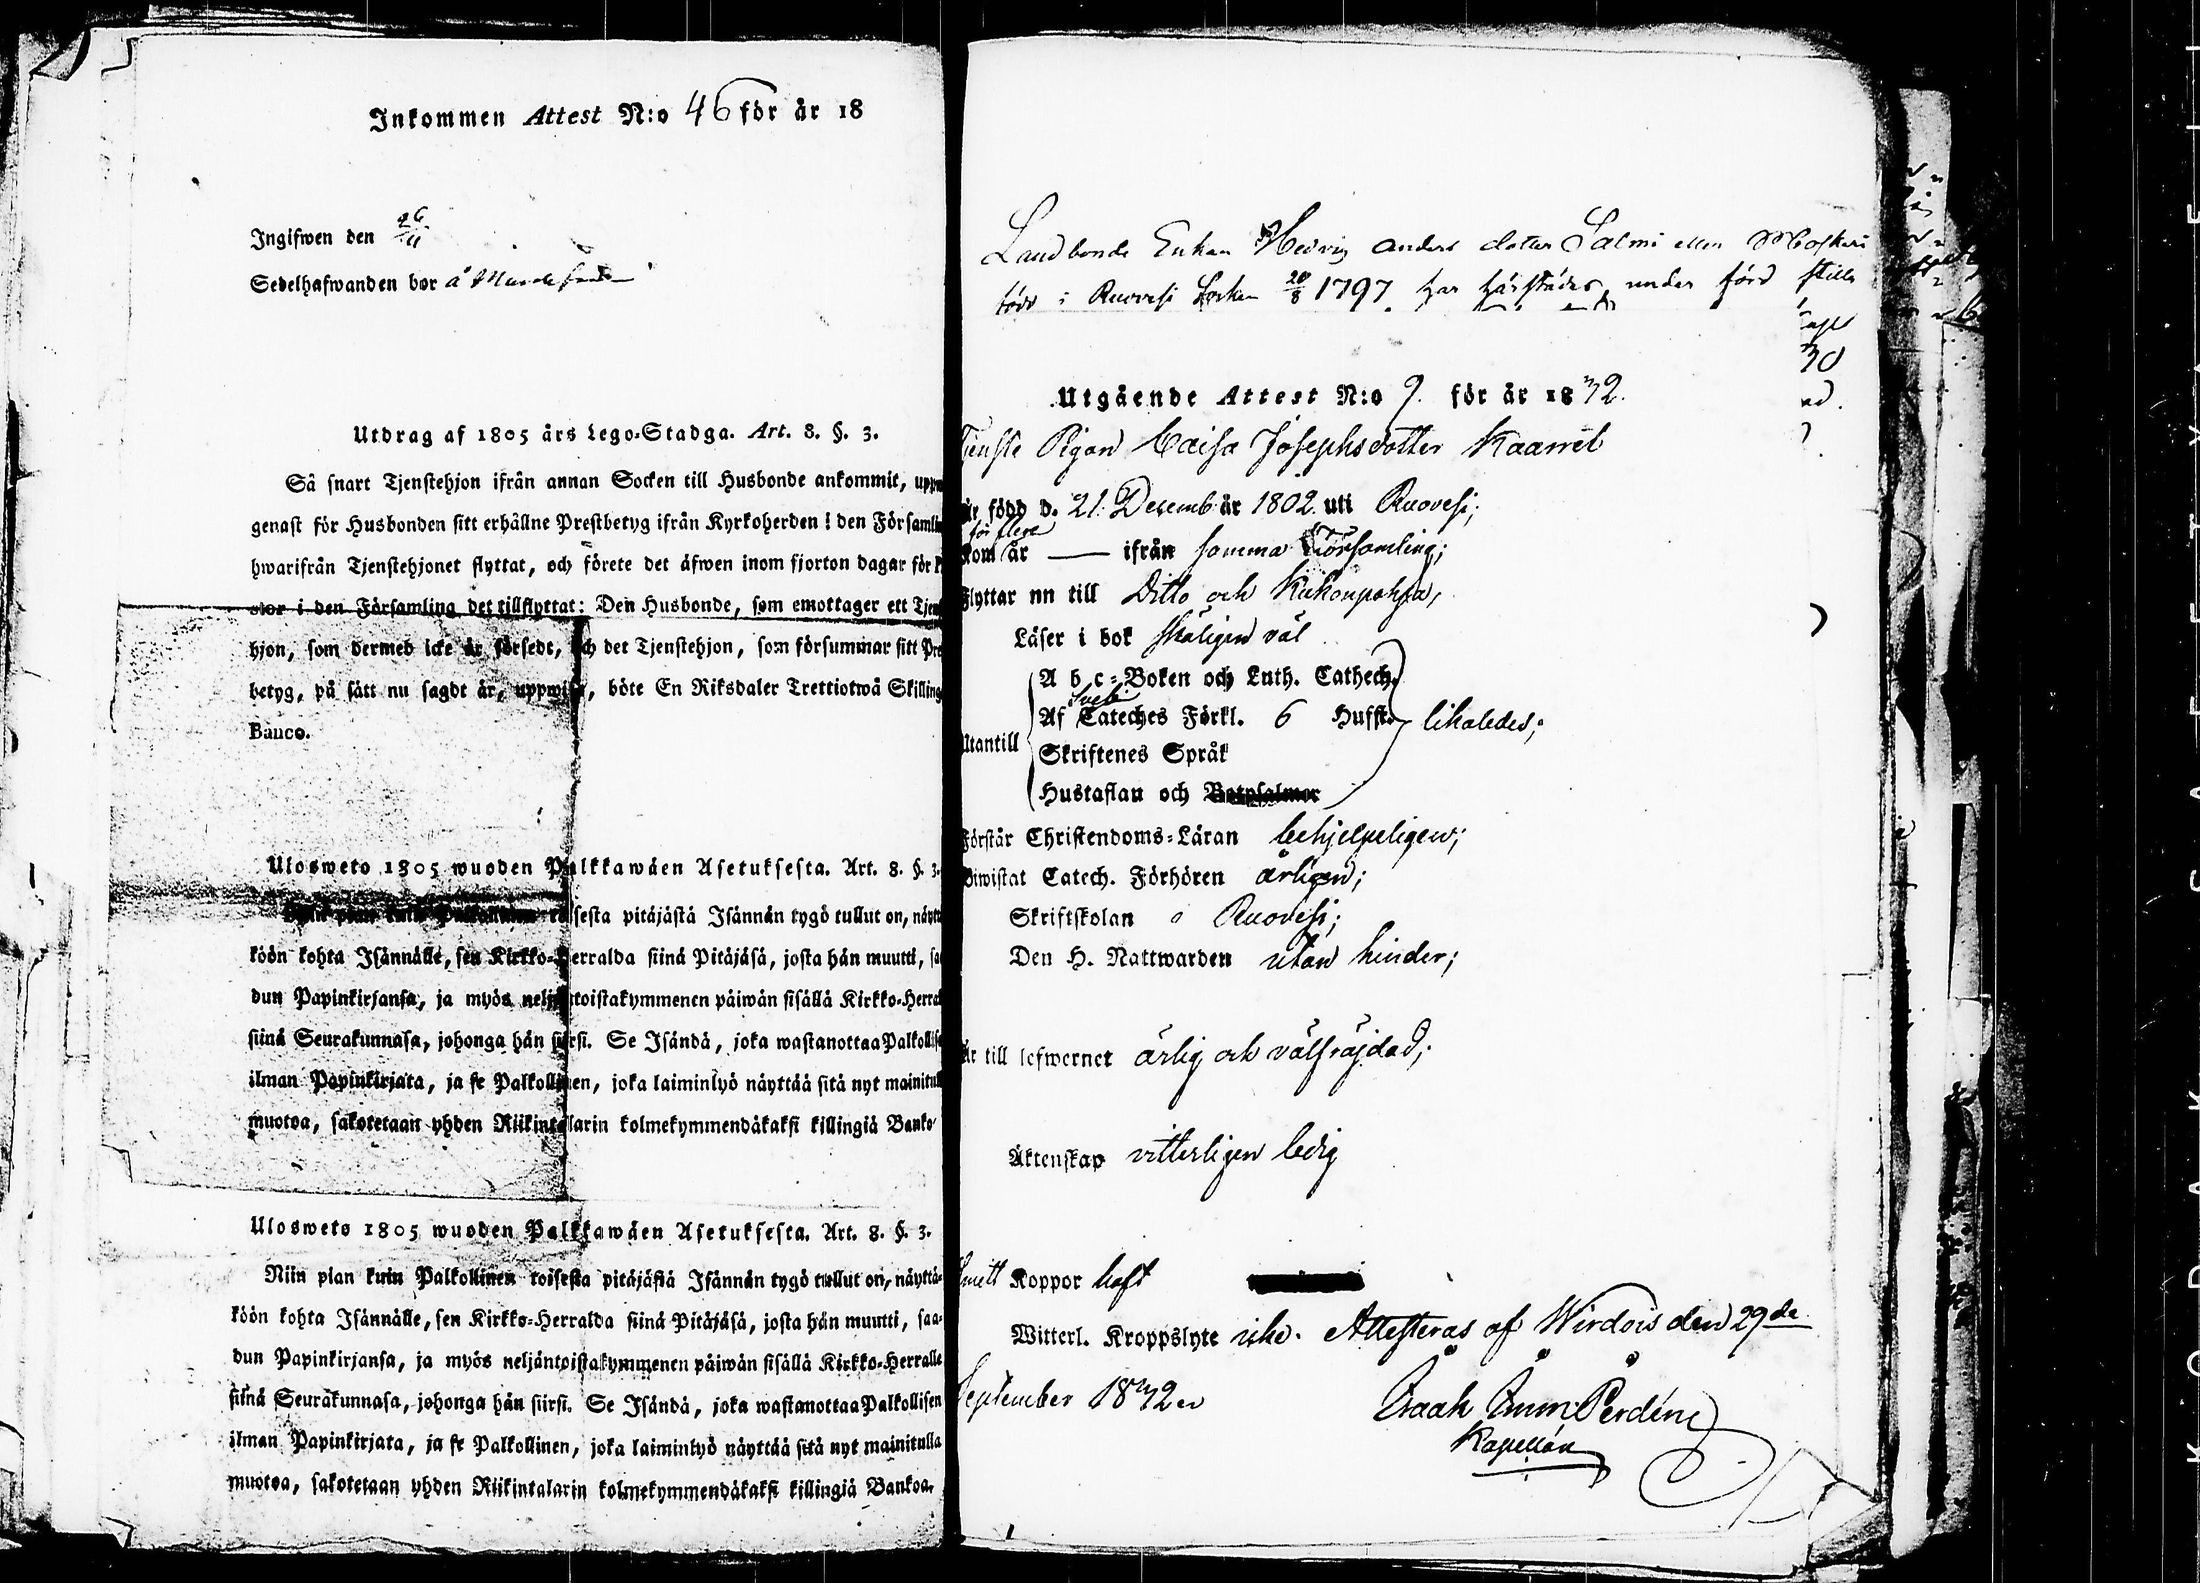 Inkommen Attest N:o 46 för år 18
Ingifwen den 26/11
Sedelhafwanden bor å
Utdrag af 1805 års Lego-Stadga. Art. 8. §. 3.
Så snart Tjenstehjon ifrån annan Socken till Husbonde ankommit,
genast för Husbonden sitt erhållne Prestbetyg ifrån Kyrkoherden i den Församli
hwarifrån Tjenstehjonet flyttat, och förete det äfwen inom fjorton dagar för
i den Församling det tillflyttat: Den Husbonde, som emottager ett Tjen
hjon, som dermed icke är försedt, och det Tjenstehjon, som försummar sitt Pre
betyg, på sätt nu sagdt är, uppwisa, böte En Riksdaler Trettiotwå Skilling
Banco.
Ulosweto 1805 wuoden Palkkawäen Asetuksesta. Art. 8. §. 3.
Niin pian kuin Palkollinen toisesta pitäjästä Isännän tygö tullut on, näytt
köön kohta Isännälle, sen Kirkko-Herralda siinä Pitäjäsä, josta hän muutti, sa
dun Papinkirjansa, ja myös neljäntoistakymmenen päiwän sisällä Kirkko-Herral
siinä Seurakunnasa, johonga hän siirsi. Se Isändä, joka wastanottaa Palkollise
ilman Papinkirjata, ja se Palkollinen, joka laiminlyö näyttää sitä nyt mainitull
muotoa, sakotetaan yhden Riikintalarin kolmekymmendäkaksi killingiä Banko
Ulosweto 1805 wuoden Palkkawäen Asetuksesta. Art. 8. §. 3.
Niin pian kuin Palkollinen toisesta pitäjästä Isännän tygö tullut on, näyttä-
köön kohta Isännälle, sen Kirkko-Herralda siinä Pitäjäsä, josta hän muutti, saa-
dun Papinkirjansa, ja myös neljäntoistakymmenen päiwän sisällä Kirkko-Herralle
siinä Seurakunnasa, johonga hän siirsi. Se Isändä, joka wastanottaa Palkollisen
ilman Papinkirjata, ja se Palkollinen, joka laiminlyö näyttää sitä nyt mainitulla
muotoa, sakotetaan yhden Riikintalarin kolmekymmendäkaksi killingiä Bankoa.
Landbonde Enkan Hedvig Anders dotter Salmi eller
född i Ruovesi Socken 20/8 1797 har härstädes under förd
Utgående Attest N:o 9. för år 1832.
Tjenste Pigan Caisa Josephsdotter
är född d. 21. Decemb: år 1802. uti Ruovesi;
för flere
kom år — ifrån samma Församling;
Flyttar nu till Ditto och Kukonpohja,
Läser i bok skäligen väl
A b c-Boken och Luth. Cathech.
Svebi
Af Cateches Förkl. 6 Hufst. likaledes;
Utantill
Skriftenes Språk
Hustaflan och Botpsalmer
Förstår Christendoms-Läran behjelpeligen;
Biwistat Catech. Förhören årligen;
Skriftskolan i Ruovesi;
Den H. Nattwarden utan hinder;
Är till lefwernet ärlig och välfräjdad;
Äktenskap vitterligen ledig
Smitt Koppor haft
Witterl. Kroppslyte icke. Attesteras af Wirdois den 29de
September 1832
Isaak Imm: Perdén
Kapellan
KODAK SAFETY FILM